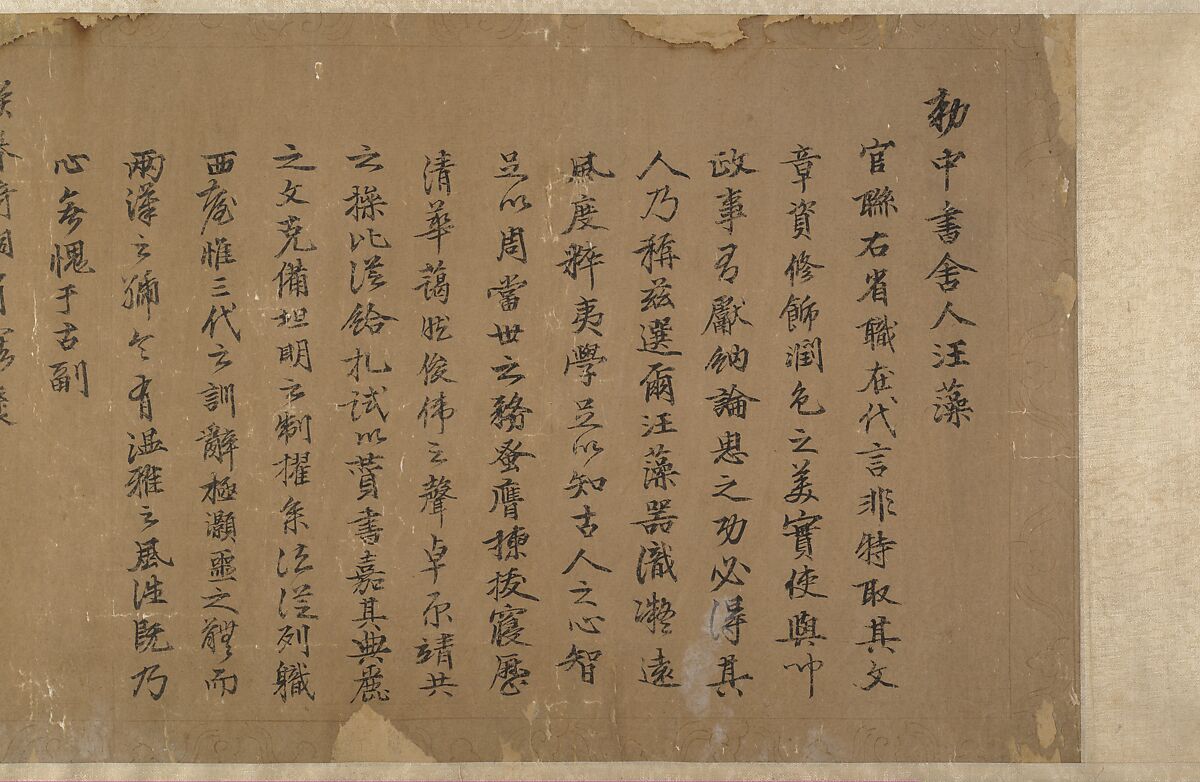 勅中書舍人汪藻
官聯右省職在代言非特取其文
章資修飾潤色之美實使與叩
政事有獻納論思之功必得其
人乃稱茲選爾汪藻器識凝遠
風度粹夷學足以知古人之心智
足以周當世之務蚤膺揀拔寖歷
清華藹然俊偉之聲卓尔靖共
之操比從給札試以贊書嘉其典麗
之文克備坦明之制擢升法從列職
西庭惟三代之訓辭極灝噩之體而
兩漢之號令有溫雅之風往既乃
心無愧于古副